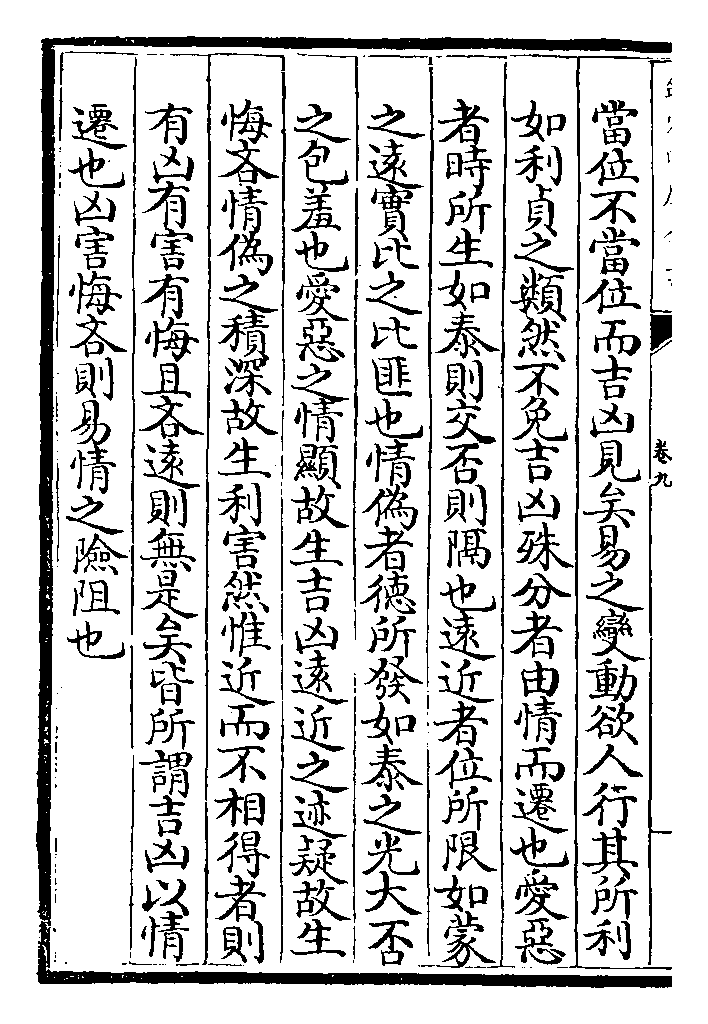 卷九
當位不當位而吉凶見矣易之變動欲人行其所利
如利貞之類然不免吉凶殊分者由情而遷也愛惡
者時所生如泰則交否則隔也遠近者位所限如蒙
之遠實比之比匪也情偽者德所發如泰之光大否
之包羞也愛惡之情顯故生吉凶遠近之迹疑故生
悔吝情偽之積深故生利害然惟近而不相得者則
有凶有害有悔且吝遠則無是矣皆所謂吉凶以情
遷也凶害悔吝則易情之險阻也